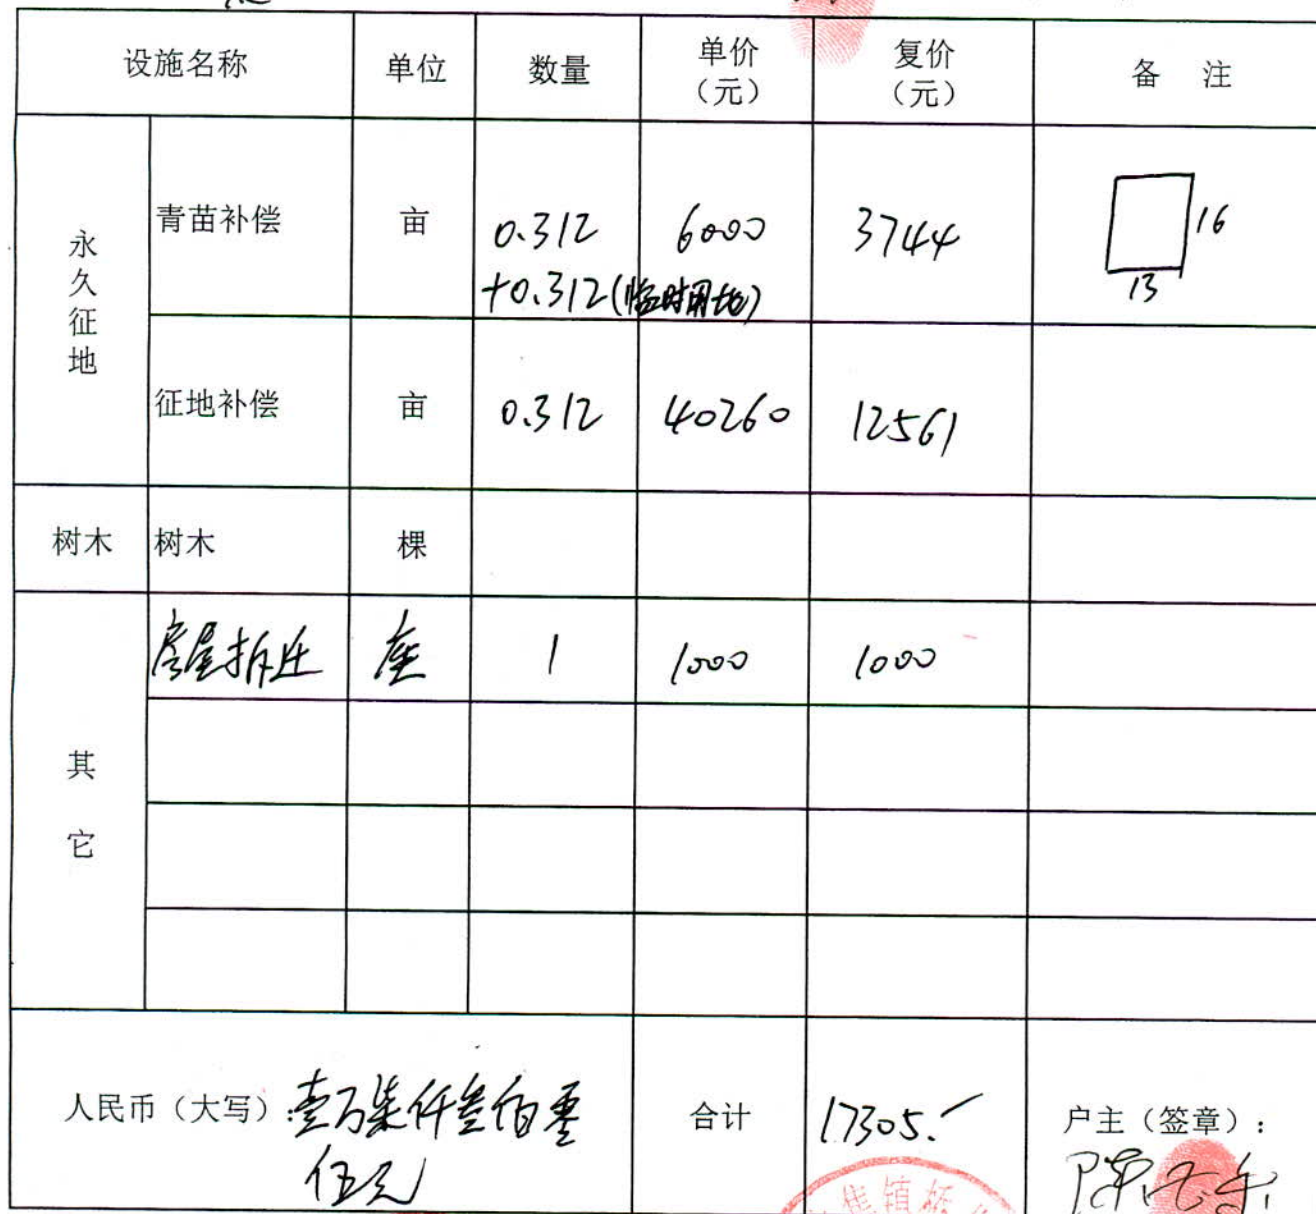 设施名称 单位 数量 单价（元） 复价（元） 备 注
永久征地 青苗补偿 亩 0.312 6000 3744 16
+0.312(临时用地) 13
征地补偿 亩 0.312 40260 12561
树木 树木 棵
其它 房屋拆迁 座 1 1000 1000
人民币（大写）:壹万柒仟叁佰零 合计 17305. 户主（签章）：
伍元